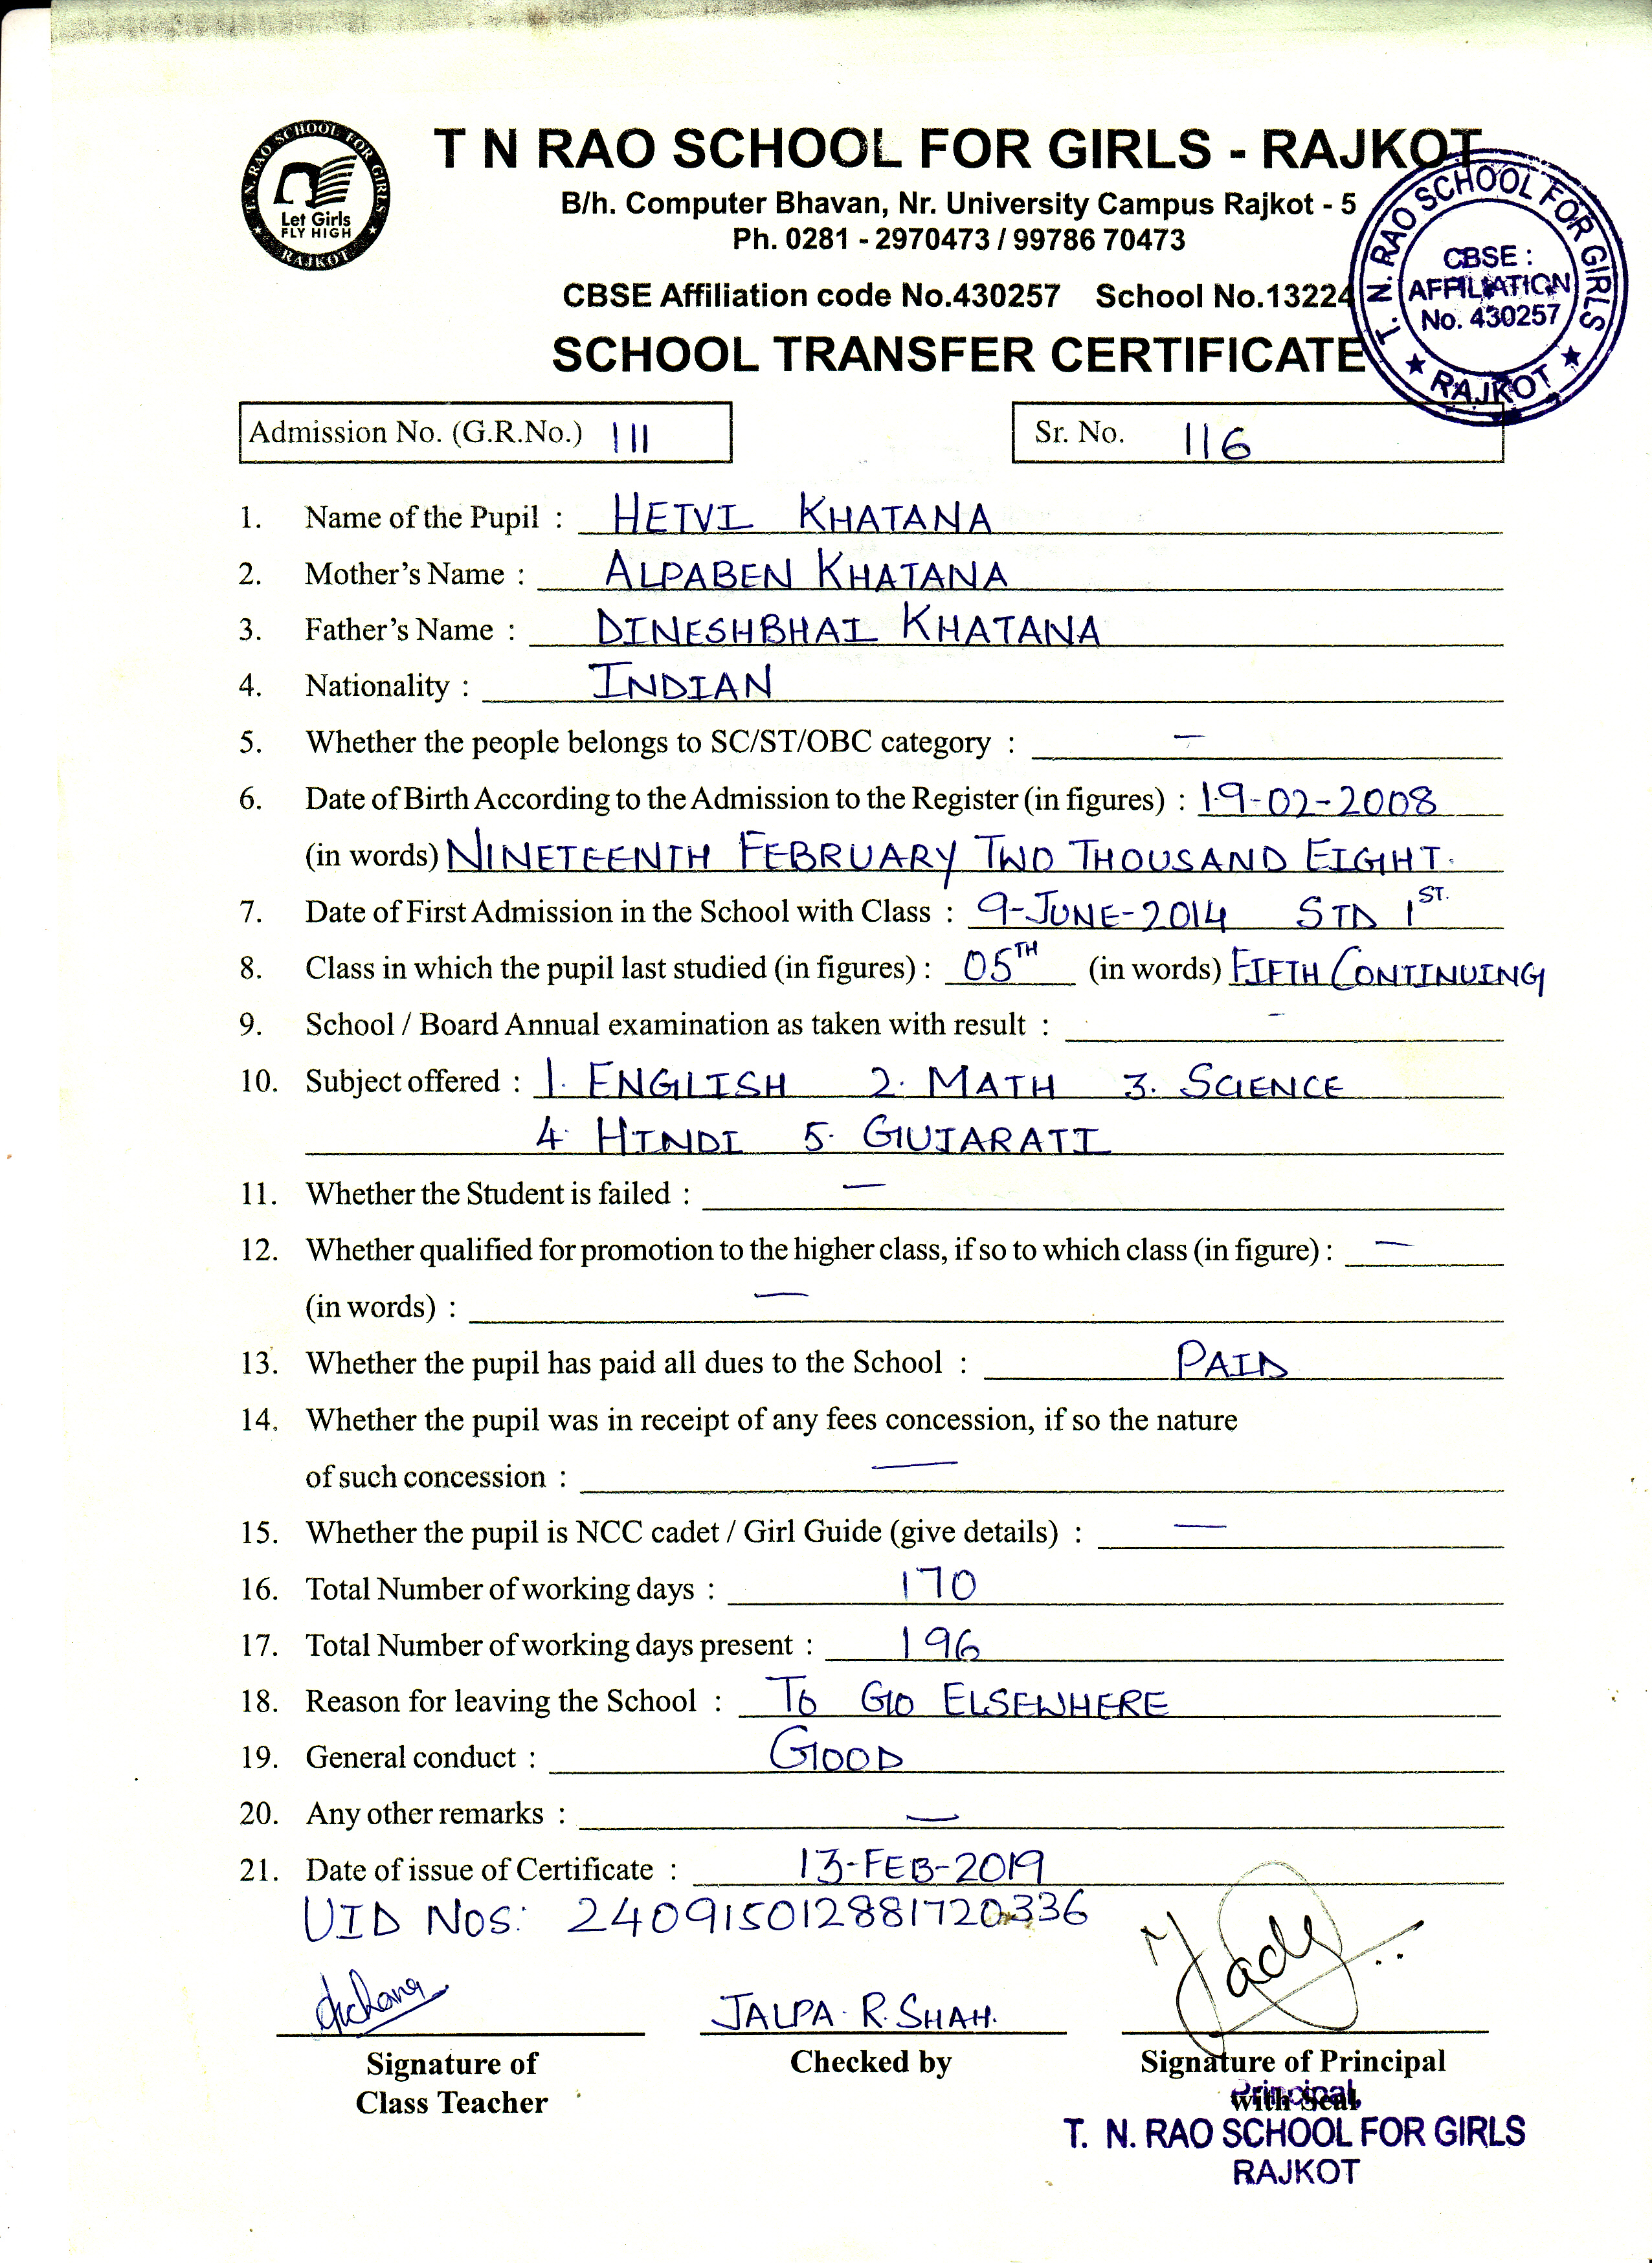 T. N. RAO SCHOOL FOR GIRLS
Let Girls
FLY HIGH
★ RAJKOT ★
T N RAO SCHOOL FOR GIRLS - RAJKOT
B/h. Computer Bhavan, Nr. University Campus Rajkot - 5
Ph. 0281 - 2970473 / 99786 70473
CBSE Affiliation code No.430257 School No.13224
SCHOOL TRANSFER CERTIFICATE
T. N. RAO SCHOOL FOR GIRLS
CBSE :
AFFILIATION
No. 430257
★ RAJKOT ★
Admission No. (G.R.No.) 111 Sr. No. 116
1. Name of the Pupil : HETVI KHATANA
2. Mother's Name : ALPABEN KHATANA
3. Father's Name : DINESHBHAI KHATANA
4. Nationality : INDIAN
5. Whether the people belongs to SC/ST/OBC category : -
6. Date of Birth According to the Admission to the Register (in figures) : 19-02-2008
(in words) NINETEENTH FEBRUARY TWO THOUSAND EIGHT.
7. Date of First Admission in the School with Class : 9-JUNE-2014 STD 1ST.
8. Class in which the pupil last studied (in figures) : 05TH (in words) FIFTH CONTINUING
9. School / Board Annual examination as taken with result : -
10. Subject offered : 1. ENGLISH 2. MATH 3. SCIENCE
4. HINDI 5. GUJARATI
11. Whether the Student is failed : —
12. Whether qualified for promotion to the higher class, if so to which class (in figure) : —
(in words) : —
13. Whether the pupil has paid all dues to the School : PAID
14. Whether the pupil was in receipt of any fees concession, if so the nature
of such concession : —
15. Whether the pupil is NCC cadet / Girl Guide (give details) : —
16. Total Number of working days : 170
17. Total Number of working days present : 196
18. Reason for leaving the School : TO GO ELSEWHERE
19. General conduct : GOOD
20. Any other remarks : —
21. Date of issue of Certificate : 13-FEB-2019
UID NOS: 240915012881720336
JALPA. R. SHAH.
Signature of Checked by Signature of Principal
Class Teacher with Seal
Principal
T. N. RAO SCHOOL FOR GIRLS
RAJKOT